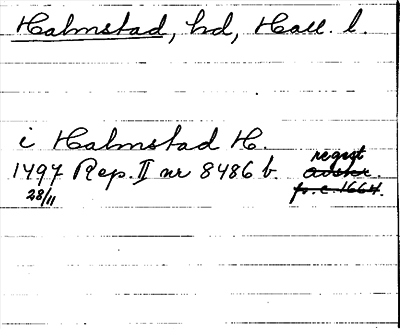 Halmstad, hd, Hall. l.
i Halmstad H.
1497 Rep. II nr 8486 b. regest avskr.
28/11 fr. c. 1664.